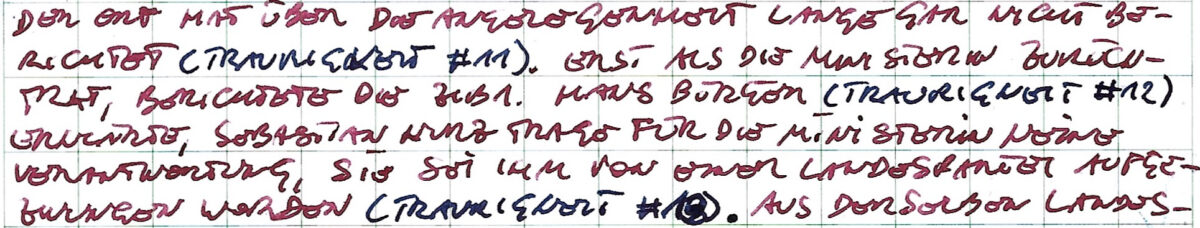 DER ORF HAT ÜBER DIE ANGELEGENHEIT LANGE GAR NICHT BE-
RICHTET (TRAURIGKEIT #11). ERST ALS DIE MINISTERIN ZURÜCK-
TRAT, BERICHTETE DIE ZIB1. HANS BÜRGER (TRAURIGKEIT #12)
ERKLÄRTE, SEBASTIAN KURZ TRAGE FÜR DIE MINISTERIN KEINE
VERANTWORTUNG, SIE SEI IHM VON EINER LANDESPARTEI AUFGE-
ZWUNGEN WORDEN (TRAURIGKEIT #13). AUS DERSELBEN LANDES-